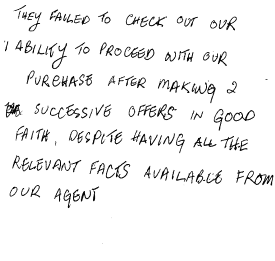 THEY FAILED TO CHECK OUT OUR
ABILITY TO PROCEED WITH OUR
PURCHASE AFTER MAKING 2
SUCCESSIVE OFFERS IN GOOD
FAITH, DESPITE HAVING ALL THE
RELEVANT FACTS AVAILABLE FROM
OUR AGENT